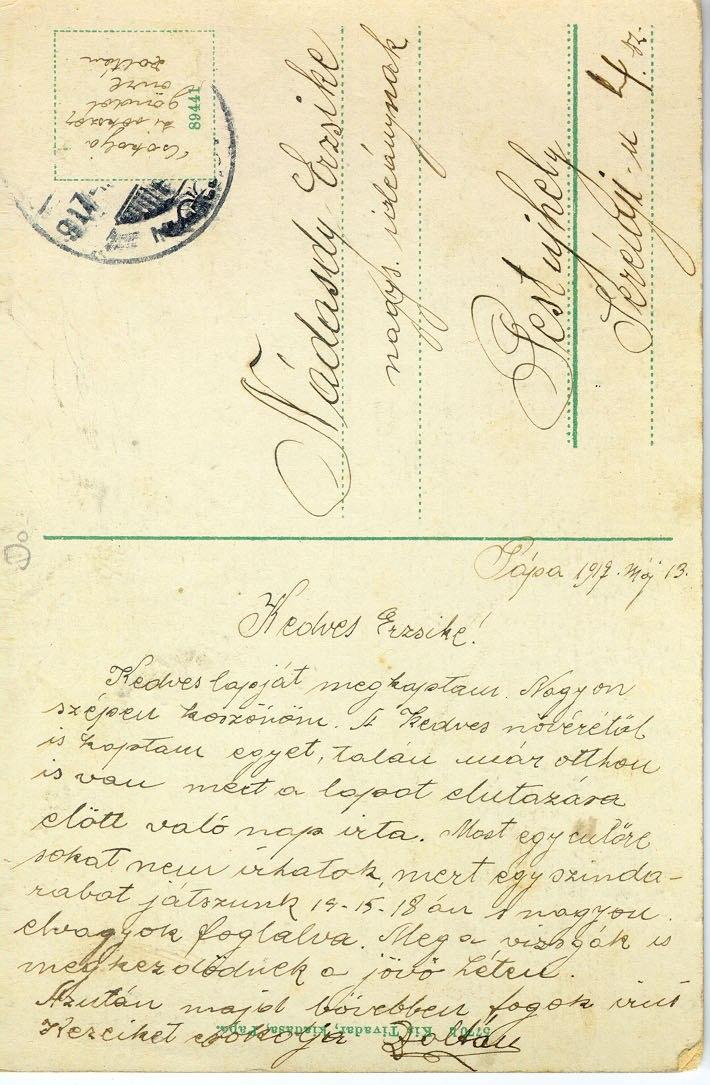 Csókolja
és sokszor
gondol
önre
Zoltán
89441
917
Nádasdy Erzsike
nagys. úrleánynak
Pestujhely
Szérdji-u 4. sz.
Pápa 1917. Máj 13.
Kedves Erzsike!
Kedves lapját megkaptam. Nagyon
szépen köszönöm. A Kedves nővérétől
is kaptam egyet, talán már otthon
is van mert a lapot elutazása
előtt való nap irta. Most egyenlőre
sokat nem irhatok, mert egy szinda-
rabot játszunk 14-15-18 án s nagyon
elvagyok foglalva. Meg a vizsgák is
megkezdődnek a jövő héten.
Azután majd bővebben fogok irni
Kezeiket csókolja Zoltán
5770b Kis Tivadar, kiadása, Pápa.